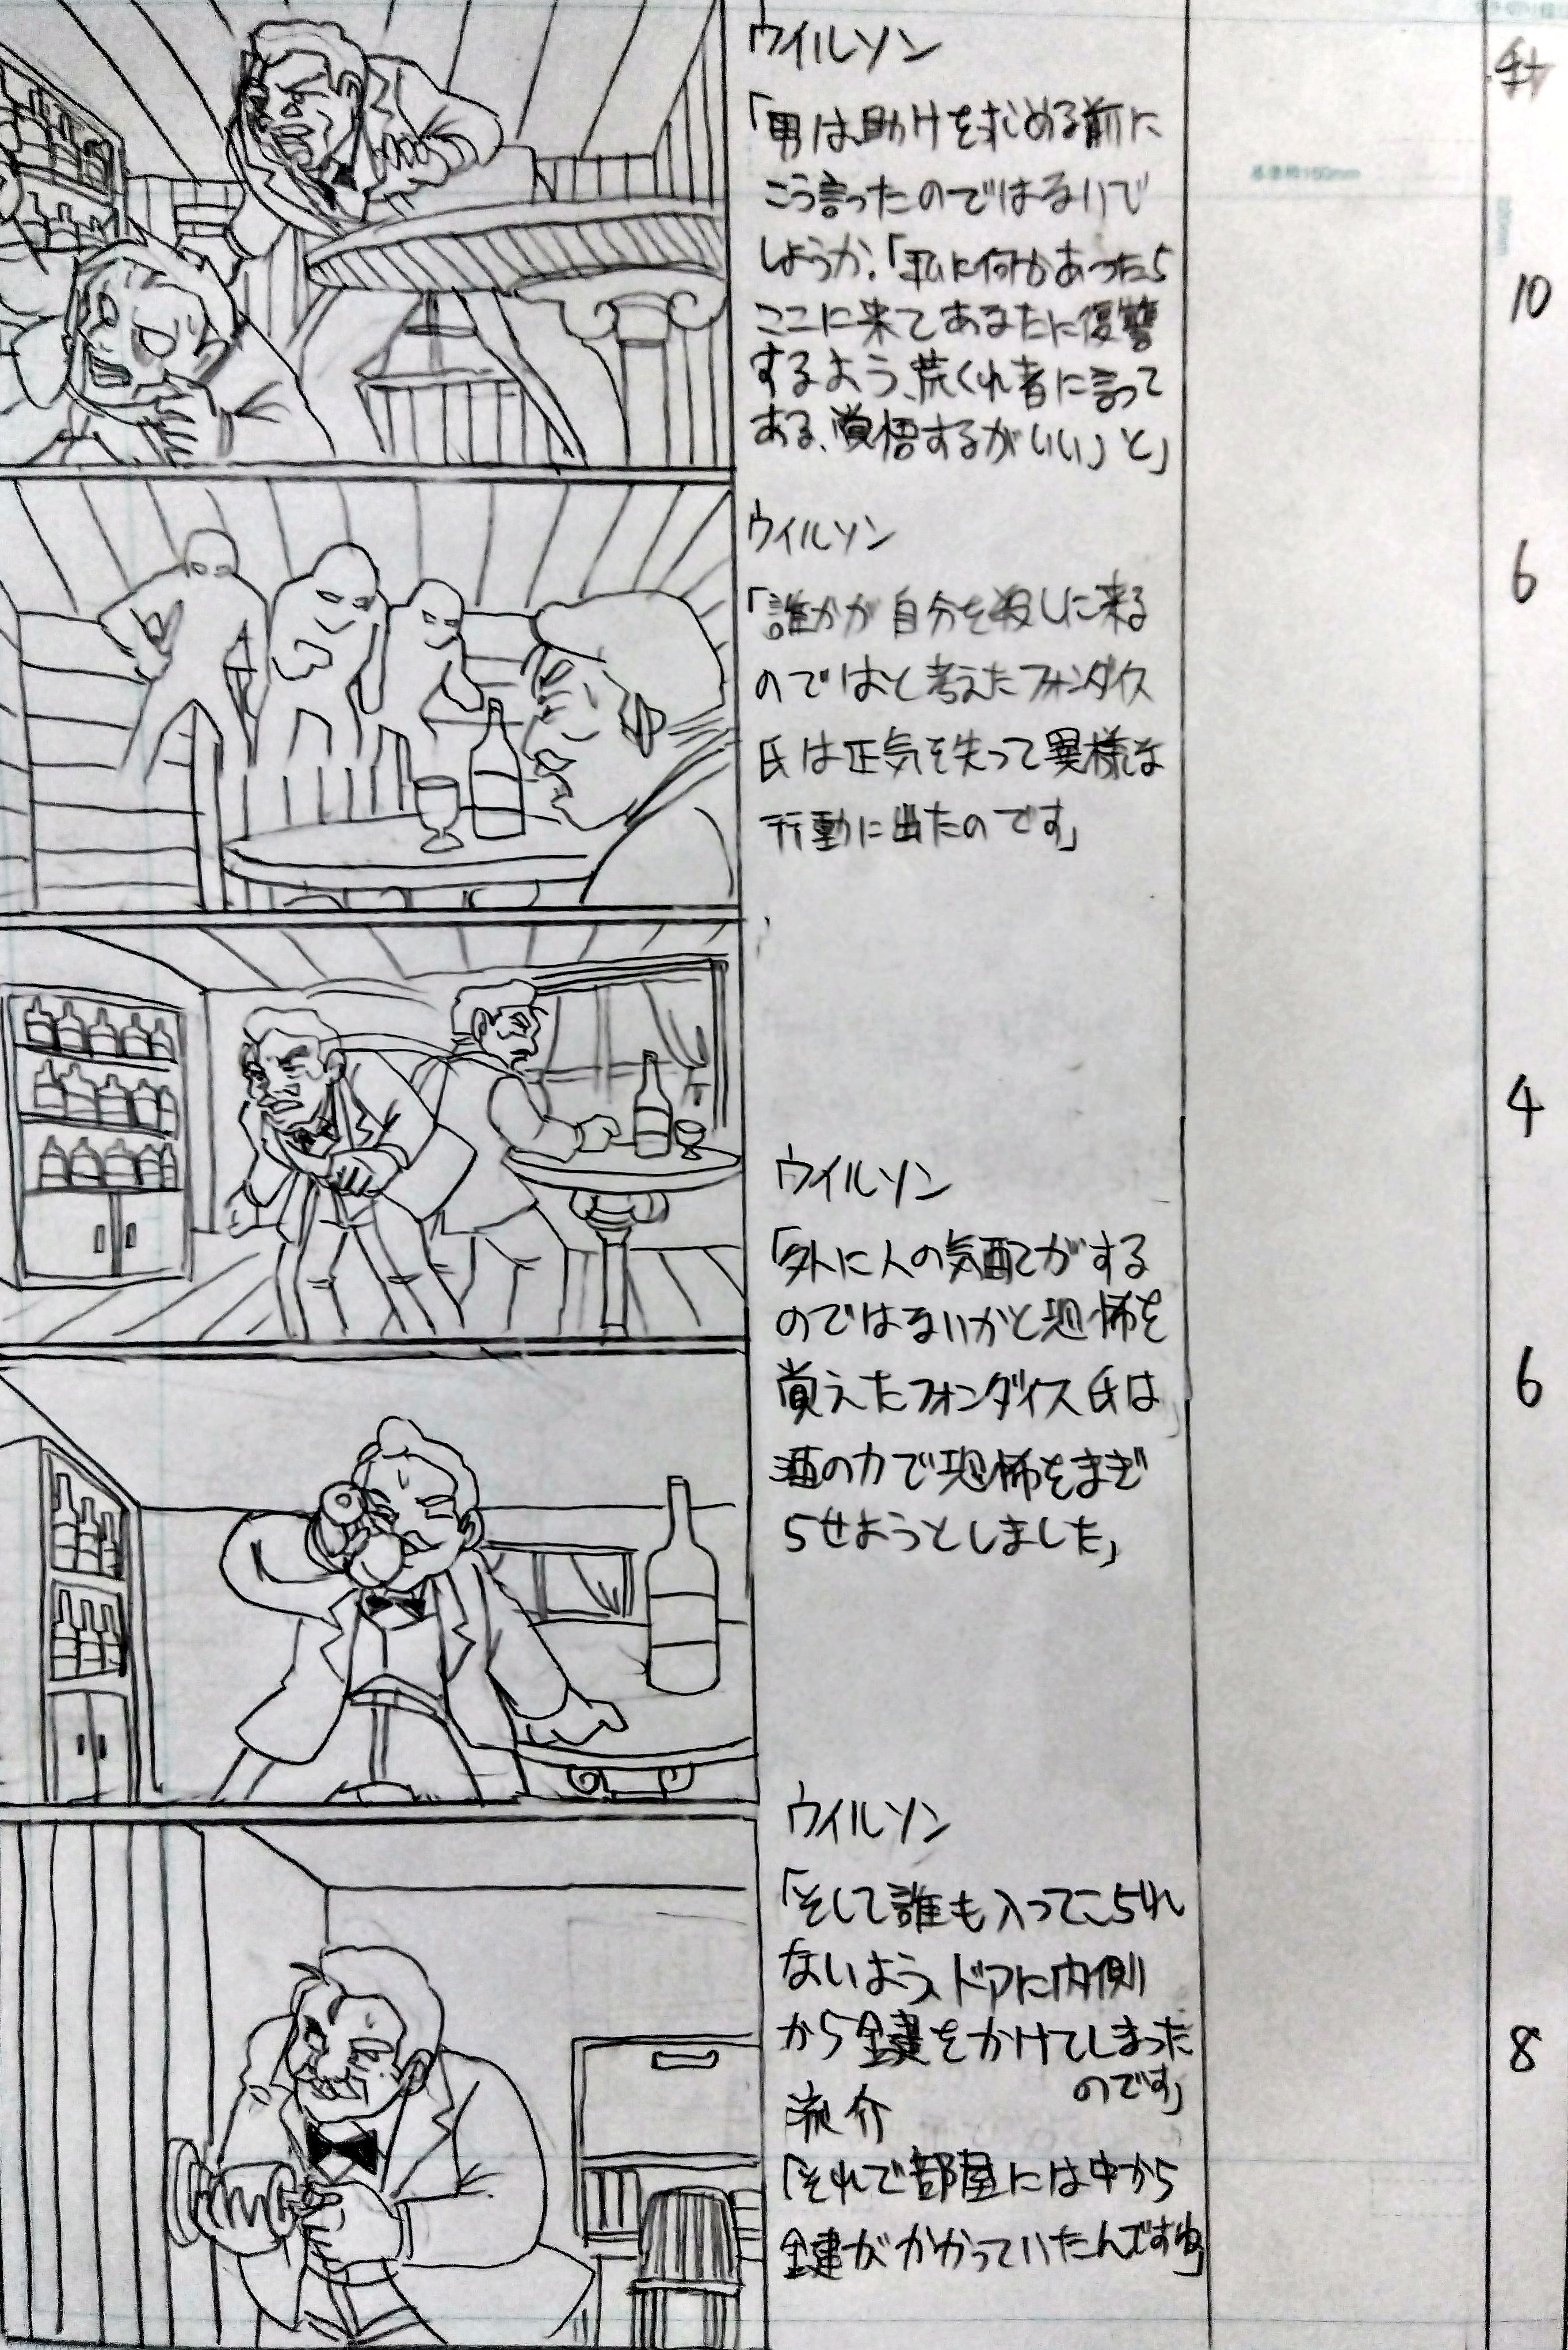 ウイルソン
「男は助けを求める前に
こう言ったのではないで
しょうか、「私に何かあったら
ここに来てあなたに復讐
するよう、荒くれ者に言って
ある、覚悟するがいい」と」
10
ウイルソン
「誰かが自分を殺しに来る
のではと考えたフォンダイス
氏は正気を失って異様な
行動に出たのです」
6
4
ウイルソン
「外に人の気配がする
のではないかと恐怖を
覚えたフォンダイス氏は
酒の力で恐怖をまぎ
らせようとしました」
6
ウイルソン
「そして誰も入ってこられ
ないよう、ドアに内側
から鍵をかけてしまった
のです」
流介
「それで部屋には中から
鍵がかかっていたんですね」
8